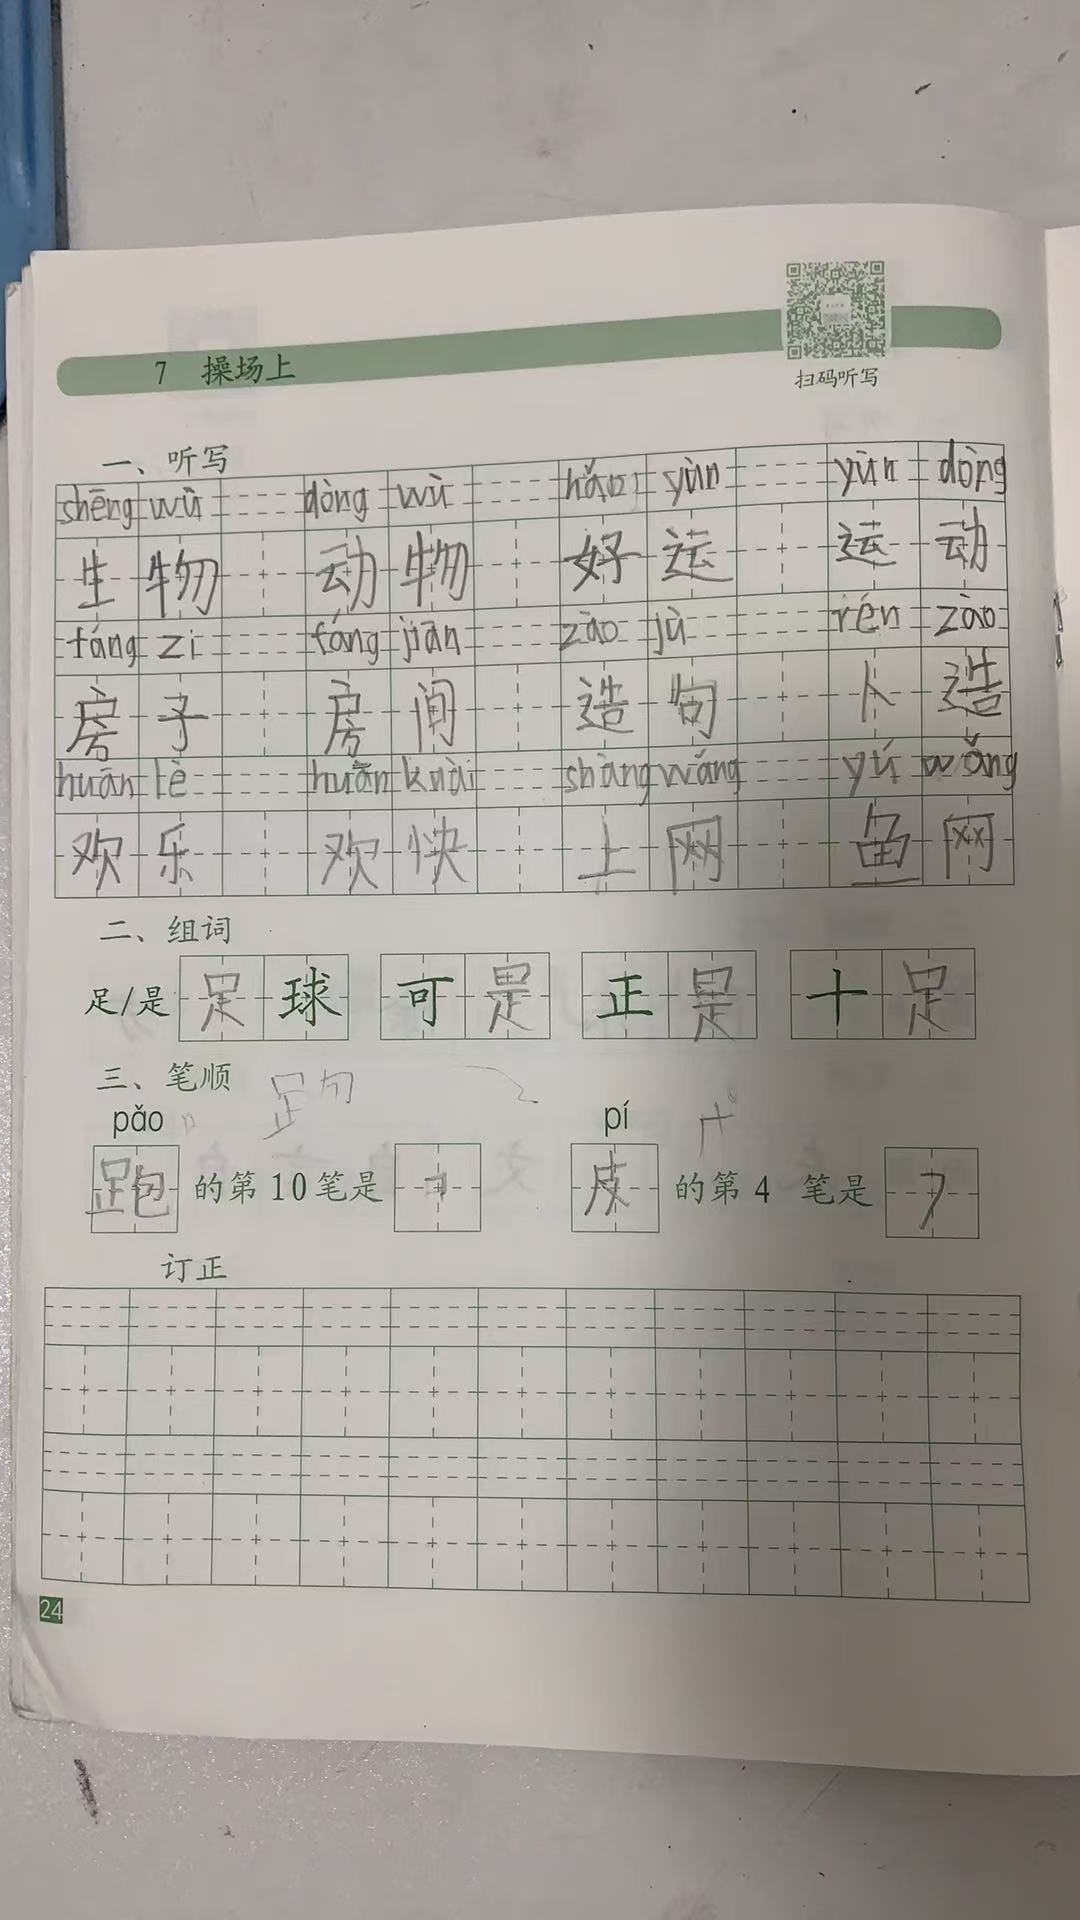 7 操场上
扫码听写
一、听写
shēng wù dòng wù hǎo yùn yùn dòng
生物 动物 好运 运动
fáng zi fáng jiān zào jù rén zào
房子 房间 造句 人造
huān lè huān kuài shàng wǎng yú wǎng
欢乐 欢快 上网 鱼网
二、组词
足/是 足球 可是 正是 十足
三、笔顺
pǎo pí
跑 的第10笔是 ㇆ 皮 的第4 笔是 ㇇
订正
24